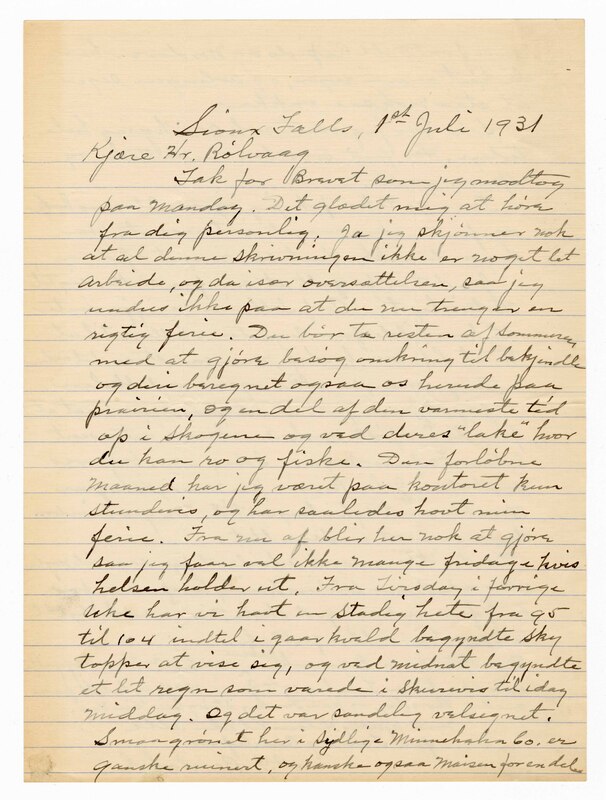 Sioux Falls, 1st Juli 1931
Kjære Hr. Rølvaag
Tak for Brevet som jeg modtog
paa Mandag. Det glædet mig at höre
fra dig personlig. Ja jeg skjønner nok
at al denne skrivningen ikke er noget let
arbeide, og da især oversættelsen, saa jeg
undres ikke paa at du nu trenger en
rigtig ferie. Du bör ta resten af Sommeren
med at gjöre besög omkring til bekjendte
og deri beregnet ogsaa os herude paa
prairien, og en del af den varmeste tid
op i Skogene og ved deres "lake" hvor
du kan ro og fiske. Den forlöbne
Maaned har jeg været paa kontoret kun
stundevis, og har saaledes havt min
ferie. Fra nu af blir her nok at gjöre
saa jeg faar vel ikke mange fridage hvis
helsen holder ut. Fra Tirsdag i forrige
uke har vi havt en stadig hete fra 95
til 104 indtil i gaar kvæld begyndte Sky
topper at vise sig, og ved midnat begyndte
et let regn som varede i Skurevis til idag
Middag. Og det var sandelig velsignet.
Smaagrönet her i Sydlige Minnehaha Co. er
ganske ruinert, og kanske ogsaa Maisen for en del